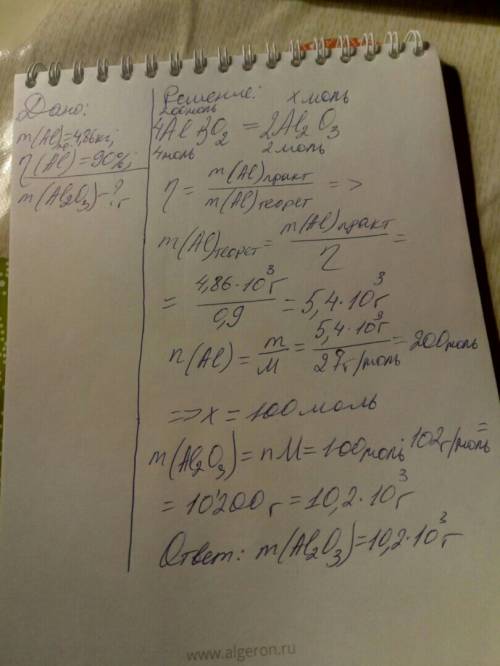 Дано:
m(Al)пр.=4,86кг;
η(Al)=90%;
m(Al₂O₃)-?г
Решение:
200моль x моль
4Al 3O₂ = 2Al₂O₃
4моль 2 моль
η = m(Al)практ / m(Al)теорет =>
m(Al)теорет = m(Al)практ / η =
= 4,86·10³г / 0,9 = 5,4·10³г
n(Al) = m/M = 5,4·10³г / 27г/моль = 200моль
=> x = 100моль
m(Al₂O₃) = nM = 100моль·102г/моль =
= 10'200г = 10,2·10³г
Ответ: m(Al₂O₃)=10,2·10³г
www.algeron.ru